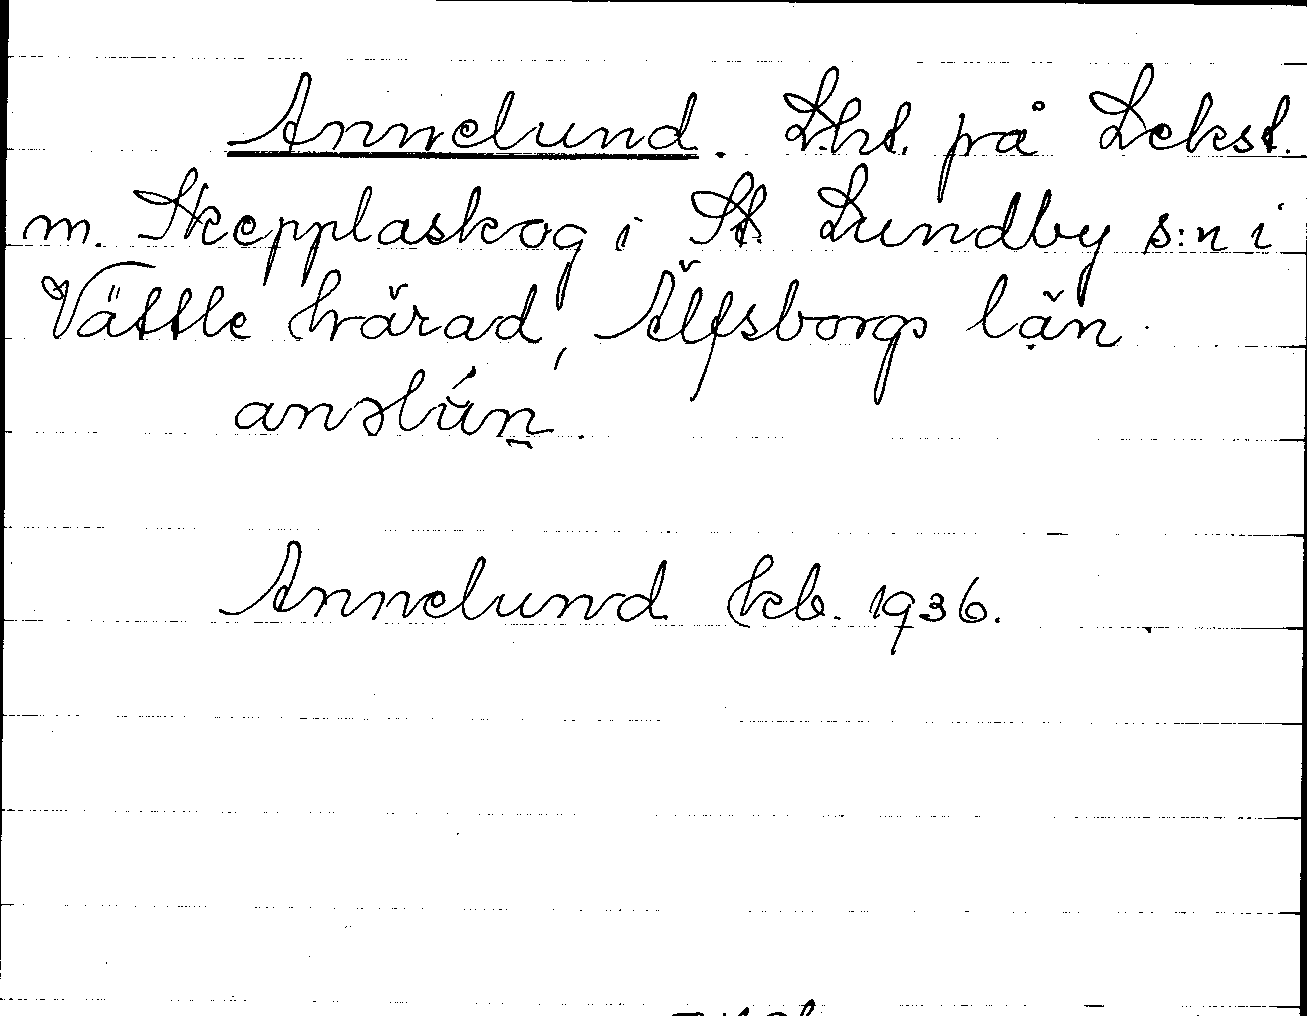 Annelund. Lht. på Lekst.
m. Skepplaskog i St. Lundby s:n i
Vättle härad, Älfsborgs län.
anəlún̠.
Annelund kb. 1936.